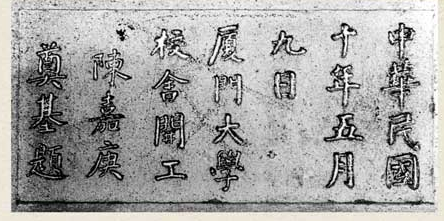 中華民國
十年五月
九日
厦門大學
校舍開工
陳嘉庚
奠基題